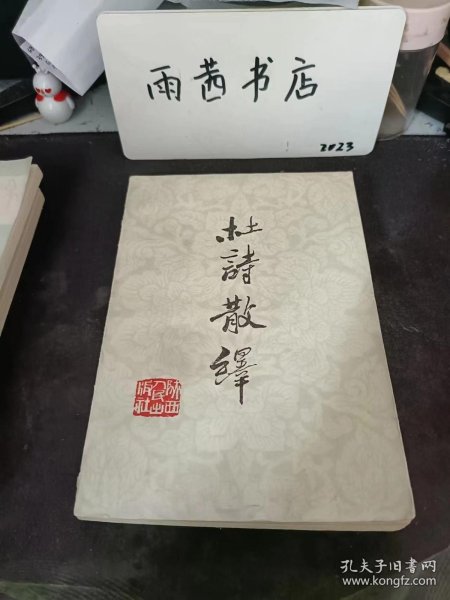 雨茜书店
2023
杜詩散繹
陕西
人民出
版社
孔夫子旧书网
www.kongfz.com